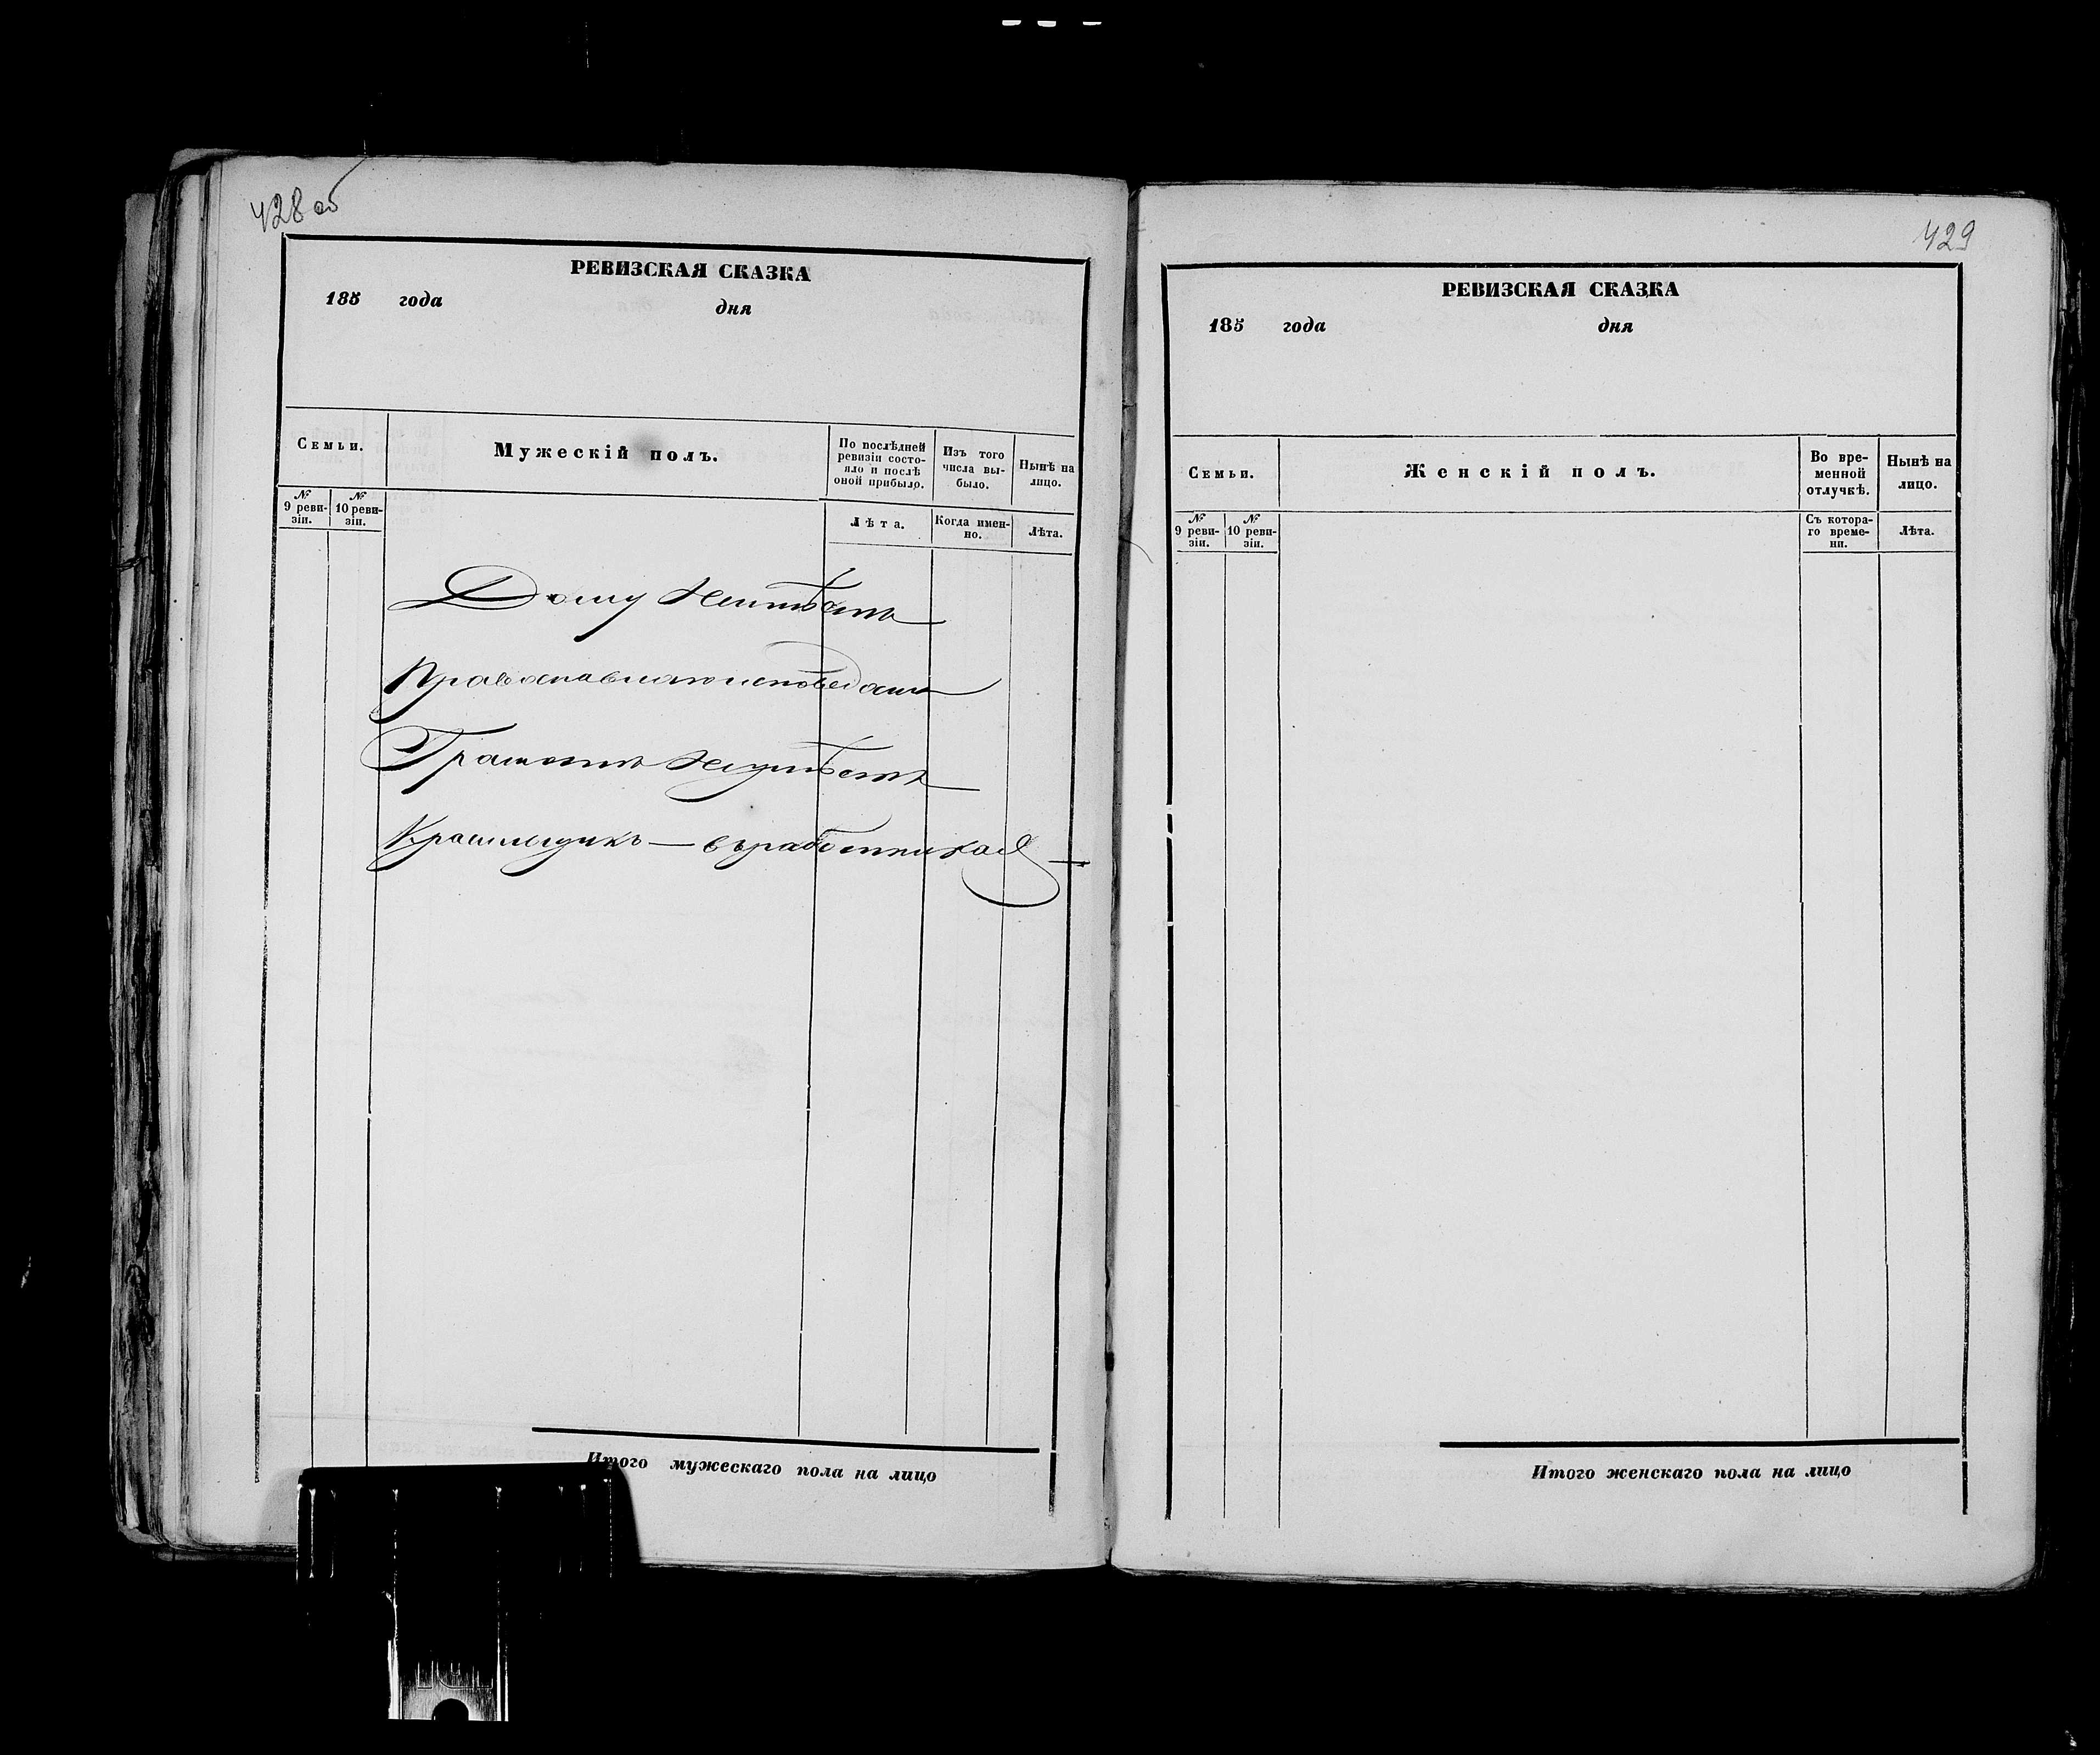 428 об
РЕВИЗСКАЯ СКАЗКА
185 года дня
Семьи.
Мужескій полъ.
По послѣдней ревизіи состояло и послѣ оной прибыло.
Изъ того числа выбыло.
Нынѣ на лицо.
№ 9 ревизіи.
№ 10 ревизіи.
Лѣта.
Когда именно.
Лѣта.
Дому Неимѣетъ
Православнаго исповеданія
Грамотѣ Неумѣетъ
Красильщикъ — въ работникахъ —
Итого мужескаго пола на лицо
429
РЕВИЗСКАЯ СКАЗКА
185 года дня
Семьи.
Женскій полъ.
Во временной отлучкѣ.
Нынѣ на лицо.
№ 9 ревизіи.
№ 10 ревизіи.
Съ котораго времени.
Лѣта.
Итого женскаго пола на лицо